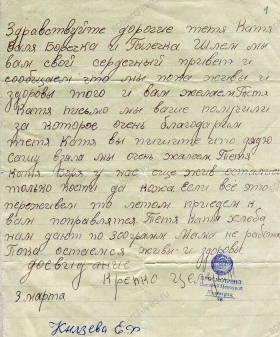 1
Здравствуйте дорогие тетя Катя
Валя Боречка и Галечка Шлем мы
вам свой сердечный привет и
сообщаем что мы пока живы и
здоровы того и вам желаем Тетя
Катя письмо мы ваше получили
за которое очень благодарим
тетя Катя вы пишите что дядю
Сашу взяли мы очень жалеем Тетя
Катя Боря у нас еще жив остались
только кости да кожа. если все это
переживем то летом приедем к
вам поправлятся Тетя Катя хлеба
нам дают по 300 грамм Мама не работа
Пока остаемся живы и здоровы
досвидание
Крепко целую
3 марта
Князева Е.Ф